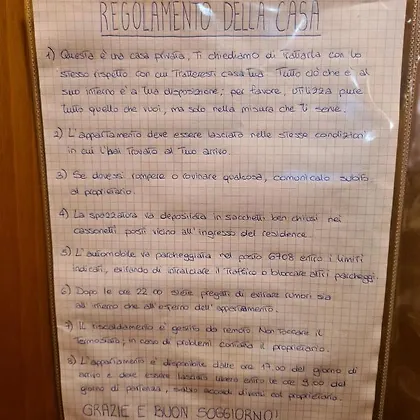 REGOLAMENTO DELLA CASA
1) Questa è una casa privata, Ti chiediamo di Trattarla con lo
stesso rispetto con cui Tratteresti casa Tua. Tutto ciò che è al
suo interno è a Tua disposizione; per favore, utilizza pure
tutto quello che vuoi, ma solo nella misura che Ti serve.
2) L'appartamento deve essere lasciato nelle stesse condizioni
in cui l'hai Trovato al Tuo arrivo.
3) Se dovessi rompere o rovinare qualcosa, comunicalo subito
al proprietario.
4) La spazzatura va depositata in sacchetti ben chiusi nei
cassonetti posti vicino all'ingresso del residence.
5) L'automobile va parcheggiata nel posto 6708 entro i limiti
indicati, evitando di intralciare il Traffico o bloccare altri parcheggi.
6) Dopo le ore 22.00 siete pregati di evitare rumori sia
all'interno che all'esterno dell'appartamento.
7) Il riscaldamento è gestito da remoto. Non Toccare il
Termostato; in caso di problemi contatta il proprietario.
8) L'appartamento è disponibile dalle ore 17.00 del giorno di
arrivo e deve essere lasciato libero entro le ore 9.00 del
giorno di partenza, salvo accordi diversi col proprietario.
GRAZIE E BUON SOGGIORNO!